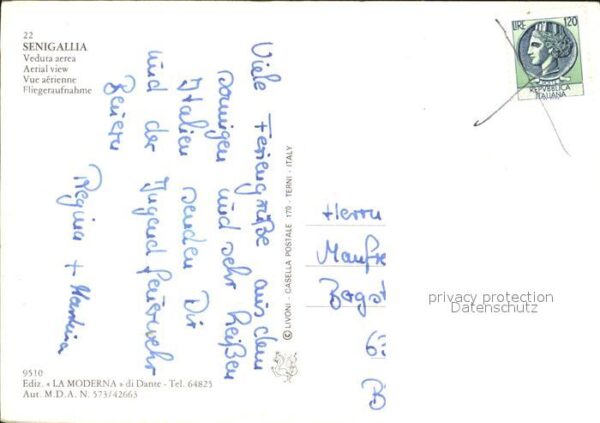 22
SENIGALLIA
Veduta aerea
Aerial view
Vue aérienne
Fliegeraufnahme
Viele Feriengrüße aus dem
sonnigen und sehr heißen
Italien senden Dir
und der Jugendfeuerwehr
Regina + Martina
LIRE 120
REPVBBLICA
ITALIANA
© LIVONI - CASELLA POSTALE 170 - TERNI - ITALY
Herrn
Manfre
privacy protection
Datenschutz
6
B
9510
Ediz. « LA MODERNA » di Dante - Tel. 64825
Aut. M.D.A. N. 573/42663